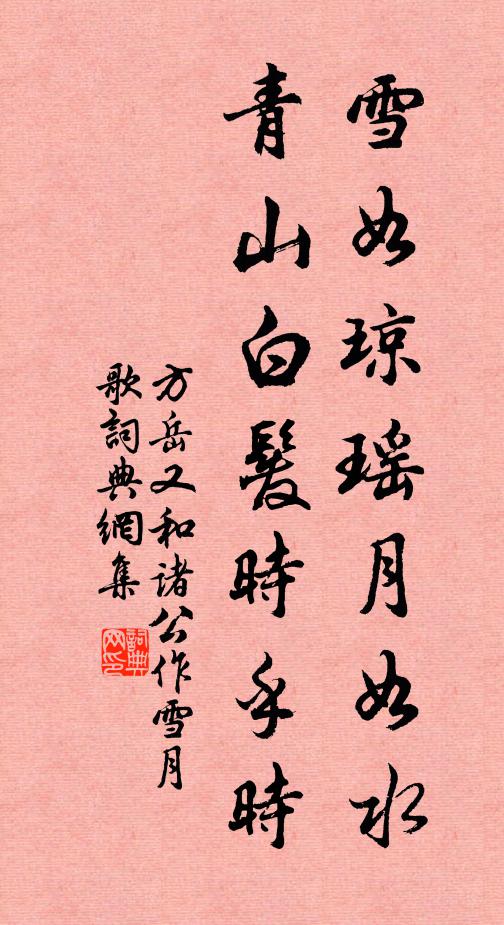 雪如琼瑶月如水
青山白髮時乎時
方岳又和诸公作雪月
歌詞典網集
詞典网印